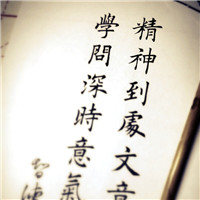 精神到處文章
學問深時意氣